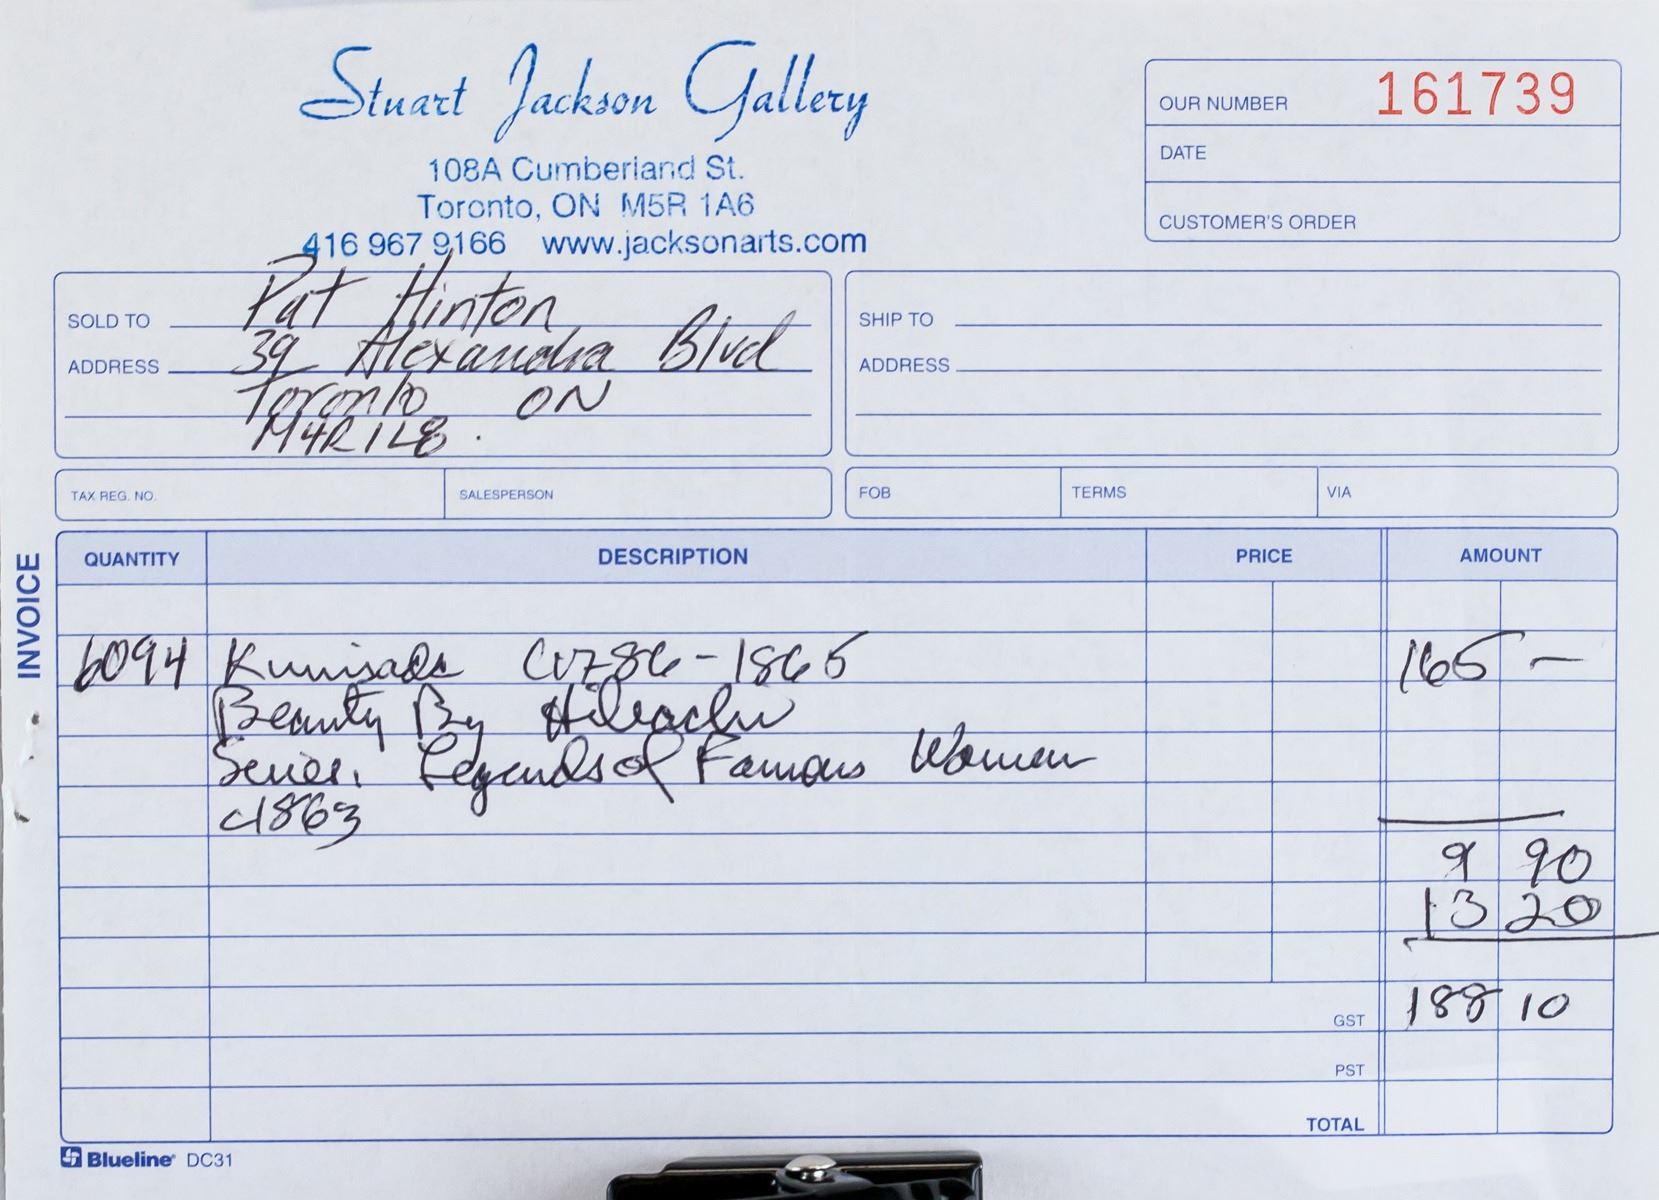 Stuart Jackson Gallery
108A Cumberland St.
Toronto, ON M5R 1A6
416 967 9166 www.jacksonarts.com
OUR NUMBER 161739
DATE
CUSTOMER'S ORDER
SOLD TO Pat Hinton
ADDRESS 39 Alexandra Blvd
Toronto ON
M4R 1L8.
SHIP TO
ADDRESS
TAX REG. NO. SALESPERSON
FOB TERMS VIA
INVOICE
QUANTITY DESCRIPTION PRICE AMOUNT
6094 Kunisada (1786-1865 165 —
Beauty By Hibachi
Series. Legends of Famous Women
c1863
9 90
13 20
GST 188 10
PST
TOTAL
Blueline DC31